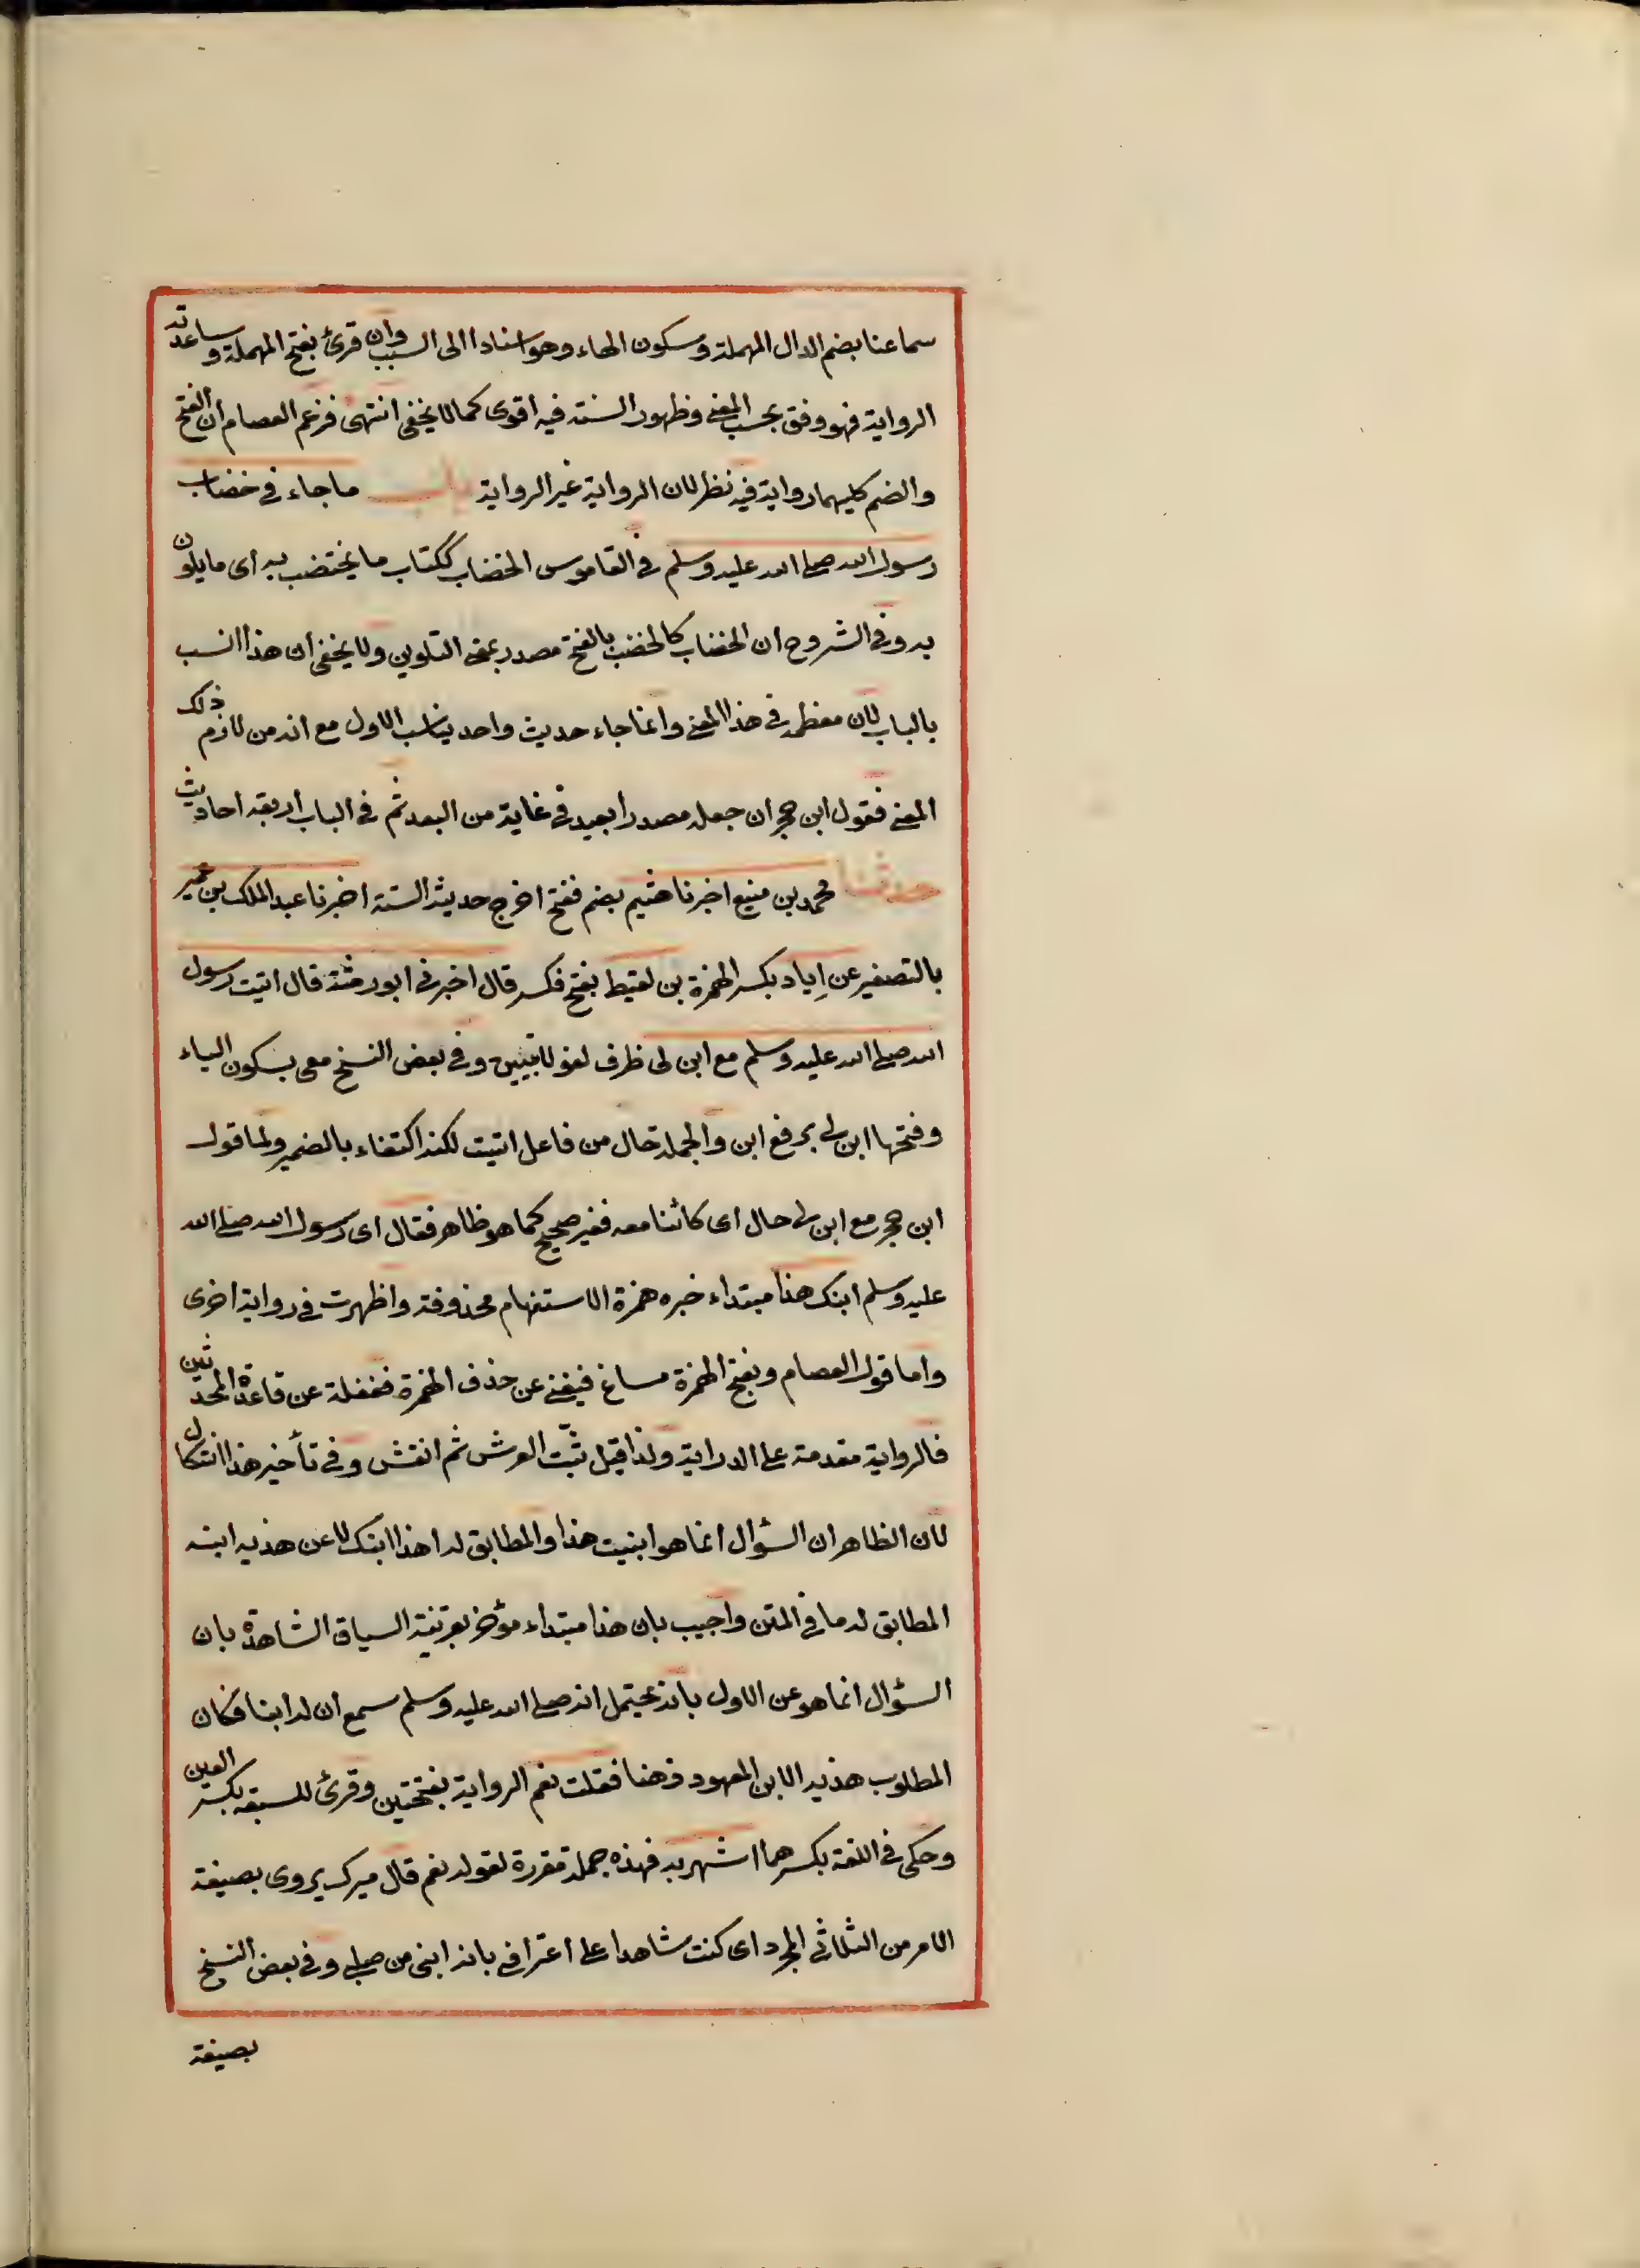 سماعنا بضم الدال المهملة وسكون الهاء وهو اسنادا الى السبب وان قرئ بفتح المهملة وساعدته
الرواية فهو وفق بحسب المعنى وظهور السنة فيه اقوى كما لا يخفى انتهى فزعم العصام أن الفتح
والضم كليهما رواية فيه نظر لان الرواية غير الرواية باب ما جاء في خضاب
رسول الله صلى الله عليه وسلم في القاموس الخضاب ككتاب ما يختضب به أى ما يلون
به وفى الشروح ان الخضاب كالخضب بالفتح مصدر بمعنى التلوين ولا يخفى أن هذا انسب
بالباب لان معظمه في هذا المعنى وانما جاء حديث واحد يناسب الاول مع انه من لازم ذلك
المعنى فقول ابن حجر ان جعله مصدرا بعيد في غاية من البعد ثم في الباب أربعة احاديث
حدثنا محمد بن منيع اخبرنا هشيم بضم ففتح اخرج حديثه الستة اخبرنا عبد الملك بن عمير
بالتصغير عن اِياد بكسر الهمزة بن لقيط بفتح فكسر قال اخبرنى ابو رمثة قال اتيت رسول
الله صلى الله عليه وسلم مع ابن لى ظرف لغو لاتيت وفى بعض النسخ معى بسكون الياء
وفتحها ابن لى برفع ابن والجملة حال من فاعل اتيت لكنه اكتفاء بالضمير ولما قول
ابن حجر مع ابن لى حال اى كائنا معه فغير صحيح كما هو ظاهر فقال اى رسول الله صلى الله
عليه وسلم ابنك هذا مبتداء خبره همزة الاستفهام محذوفة واظهرت فى رواية اخرى
واما قول العصام وبفتح الهمزة مساغ فيغنى عن حذف الهمزة فغفلة عن قاعدة المحدثين
فالرواية مقدمة على الدراية ولذا قيل ثبّت العرش ثم انقش وفى تأخير هذا اشكال
لان الظاهر ان السؤال انما هو ابنيت هذا والمطابق له اهذا ابنك لا عن هذيه ابنه
المطابق له ما فى المتن واجيب بان هذا مبتداء مؤخر بقرينة السياق الشاهدة بان
السؤال انما هو عن الاول بانه يحتمل انه صلى الله عليه وسلم سمع ان له ابنا فكان
المطلوب هذيه الابن المعهود ذهنا فقلت نعم الرواية بفتحتين وقرئ للسبعة بكسر العين
وحكى فى اللغة بكسرهما اشهد به فهذه جملة مقررة لقوله نعم قال ميرك يروى بصيغة
الامر من الثلاثى المجرد اى كنت شاهدا على اعترافى بانه ابنى من صلبى وفى بعض النسخ
بصيغة